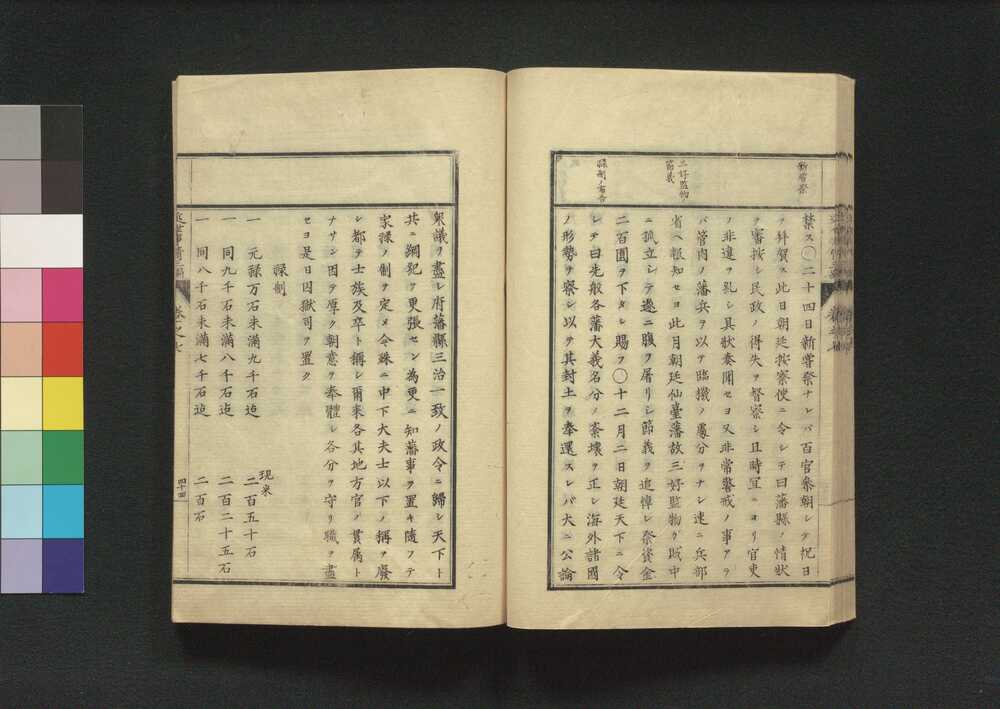 新嘗祭
三好監物
節義
禄制ノ布告
禁ス〇二十四日新嘗祭ナレバ百官參朝シテ祝日
ヲ拜賀ス此日朝廷按察使ニ令シテ曰藩縣ノ情狀
ヲ審按シ民政ノ得失ヲ督察シ且時宜ニヨリ官吏
ノ非違ヲ糺シ具狀奏聞セヨ又非常警戒ノ事アラ
バ管内ノ藩兵ヲ以テ臨機ノ處分ヲナシ速ニ兵部
省ヘ報知セヨ此月朝廷仙臺藩故三好監物ガ賊中
ニ孤立シテ遂ニ腹ヲ屠リシ節義ヲ追悼シ祭資金
二百圓ヲ下タシ賜フ〇十二月二日朝廷天下ニ令
シテ曰先般各藩大義名分ノ紊壊ヲ正シ海外諸國
ノ形勢ヲ察シ以テ其封土ヲ奉還スレバ大ニ公論
衆議ヲ盡シ府藩縣三治一致ノ政令ニ歸シ天下ト
共ニ綱犯ヲ更張セン為更ニ知藩事ヲ置キ随フテ
家禄ノ制ヲ定メ令絲ニ中下大夫士以下ノ稱ヲ廢
シ都テ士族及卒ト稱シ爾來各其地方官ノ貫属ト
ナサシ因テ厚ク朝意ヲ奉體シ各分ヲ守リ職ヲ盡
セヨ是日因獄司ヲ置ク
禄制
現米
一 元禄万石未満九千石迠 二百五十石
一 同九千石未満八千石迠 二百二十五石
一 同八千石未満七千石迠 二百石
四十四